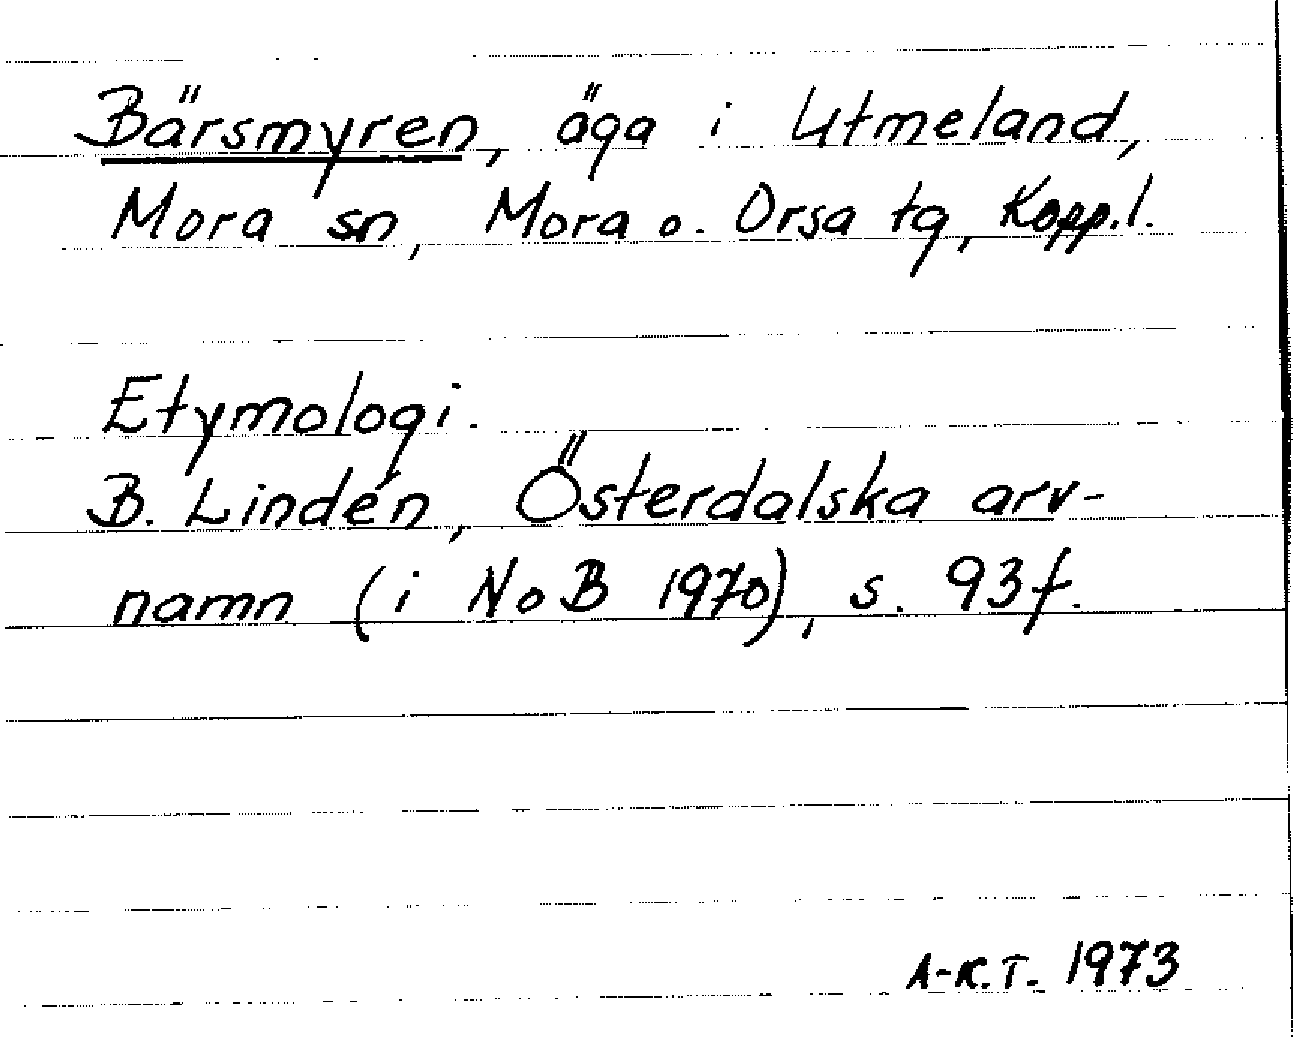 Bärsmyren, äga i Utmeland,
Mora sn, Mora o. Orsa tg, Kopp.l.
Etymologi.
B. Lindén, Österdalska arv-
namn (i NoB 1970), s. 93f.
A-K.T. 1973